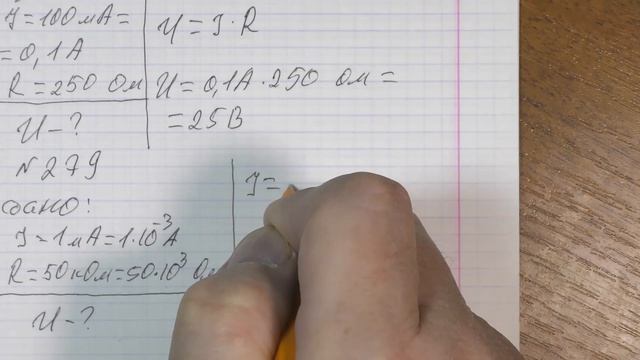 I = 100 мА =
= 0,1 А
R = 250 Ом
U - ?
U = I · R
U = 0,1А · 250 Ом =
= 25 В
№ 279
дано:
I = 1 мА = 1·10⁻³ А
R = 50 кОм = 50·10³ Ом
U - ?
I =